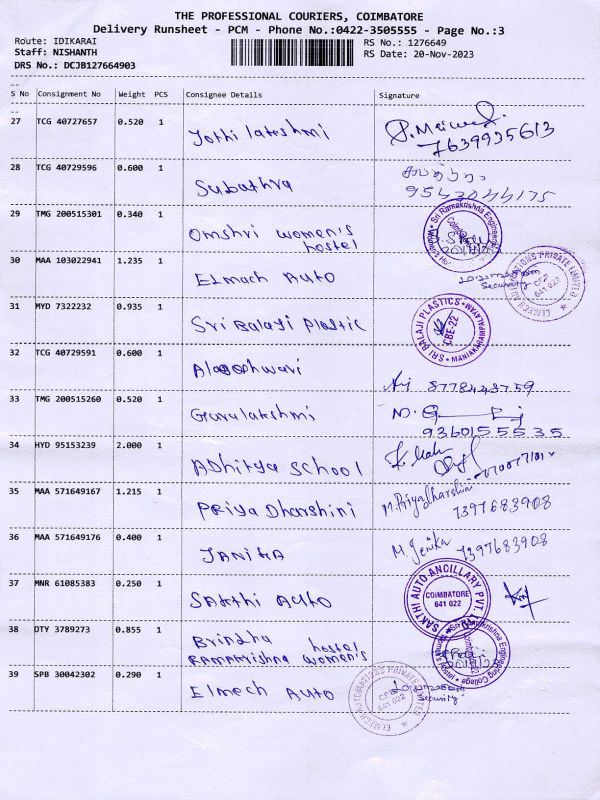 THE PROFESSIONAL COURIERS, COIMBATORE
Delivery Runsheet - PCM - Phone No.:0422-3505555 - Page No.:3
Route: IDIKARAI
RS No.: 1276649
Staff: NISHANTH
RS Date: 20-Nov-2023
DRS No.: DCJB127664903
S No Consignment No Weight PCS Consignee Details Signature
27 TCG 40727657 0.520 1 Jothi lakshmi
7639935613
28 TCG 40729596 0.600 1 Subathra
29 TMG 200515301 0.340 1 Omshri women's
hostel
30 MAA 103022941 1.235 1 Elmach Auto
Security
31 MYD 7322232 0.935 1 Sri Balaji plastic
SRI BALAJI PLASTICS
CBE-22
MANIAKARAMPALAYAM
32 TCG 40729591 0.600 1
8778448759
33 TMG 200515260 0.520 1 Gurulakshmi
9360155535
34 HYD 95153239 2.000 1 ADhitya school
35 MAA 571649167 1.215 1 PRiya Dharshini M.Priyadharshini
7397683908
36 MAA 571649176 0.400 1 JANIKA M. Jenika 7397683908
37 MNR 61085383 0.250 1 SAKthi Auto
SAKTHI AUTO ANCILLARY PVT.
COIMBATORE
641 022
38 DTY 3789273 0.855 1 Brindha hostel
Ramakrishna women's
39 SPB 30042302 0.290 1 Elmech Auto
Security